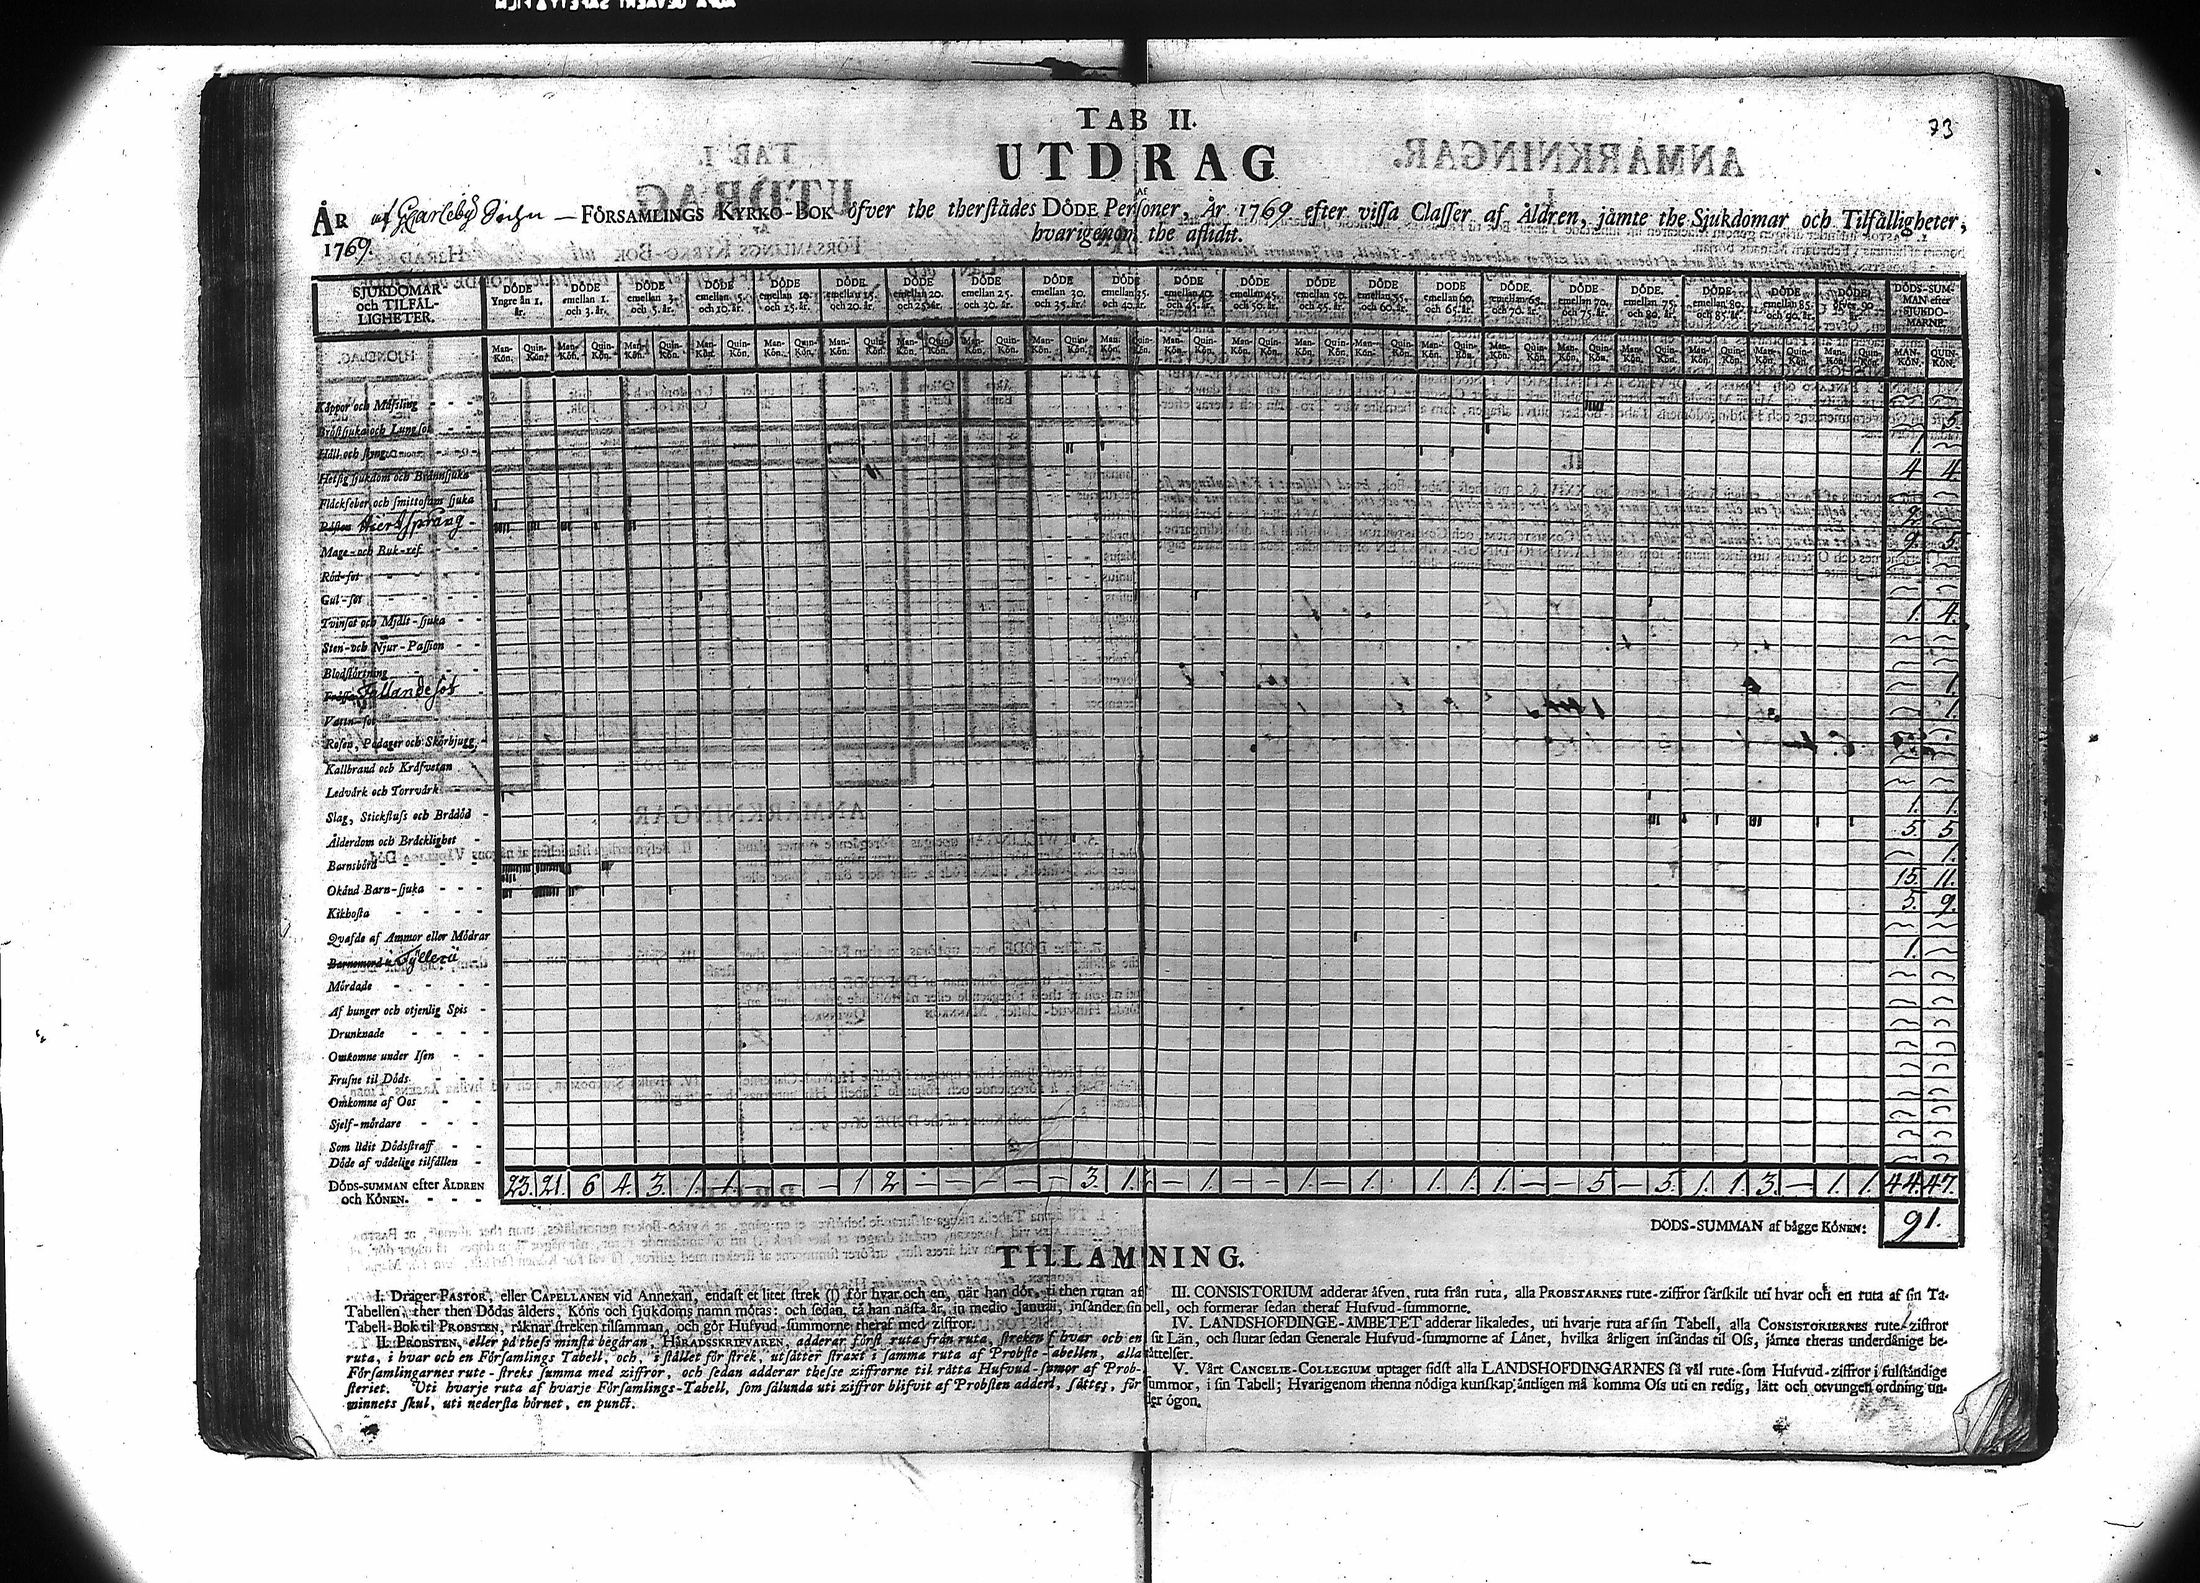 73
TAB II.
UTDRAG
AF
ÅR af Garleby Sochn — FÖRSAMLINGS KYRKO-BOK öfver the therstädes DÖDE Personer, År 1769 efter vissa Classer af Åldren, jämte the Sjukdomar och Tilfälligheter,
1769. hvarigenom the aflidit.
SJUKDOMAR och TILFÄLLIGHETER.
DÖDE Yngre än 1. år.
DÖDE emellan 1. och 3. år.
DÖDE emellan 3. och 5. år.
DÖDE emellan 5. och 10. år.
DÖDE emellan 10. och 15. år.
DÖDE emellan 15. och 20. år.
DÖDE emellan 20. och 25. år.
DÖDE emellan 25. och 30. år.
DÖDE emellan 30. och 35. år.
DÖDE emellan 35. och 40. år.
DÖDE emellan 40. och 45. år.
DÖDE emellan 45. och 50. år.
DÖDE emellan 50. och 55. år.
DÖDE emellan 55. och 60. år.
DÖDE emellan 60. och 65. år.
DÖDE emellan 65. och 70. år.
DÖDE emellan 70. och 75. år.
DÖDE emellan 75. och 80. år.
DÖDE emellan 80. och 85. år.
DÖDE emellan 85. och 90. år.
DÖDE öfver 90 år.
DÖDS-SUMMAN efter SJUKDOMARNE.
Man-Kön. Quin-Kön.
Koppor och Mäsling
Bröstsjuka och Lungsot 5.
Håll och styng 1.
Hetsig sjukdom och Brännsjuka 4 4
Fläckfeber och smittosam sjuka
Pästen Hiertsprång 2.
Mage- och Buk-ref 9. 5.
Röd-sot
Gul-sot
Tvinsot och Mjält-sjuka 1. 4.
Sten- och Njur-Passion
Blodstörtning
Frossa Fallandesot 1.
Vattu-sot 1.
Rosen, Podager och Skörbjugg
Kallbrand och Kräfvetan
Ledvärk och Torrvärk
Slag, Stickfluss och Brådöd 1. 1.
Ålderdom och Bräcklighet 5. 5
Barnsbörd 1.
Okänd Barn-sjuka 15. 11.
Kikhosta 5. 9.
Qvafde af Ammor eller Mödrar
Barnamord Fylleri 1.
Mördade
Af hunger och otjenlig Spis
Drunknade
Omkomne under Isen
Frusne til Döds
Omkomne af Oos
Sjelf-mördare
Som lidit Dödsstraff
Döde af vådelige tilfällen
DÖDS-SUMMAN efter ÅLDREN och KÖNEN. 23. 21. 6 4. 3. 1. 1. — — — 1 2 — — — — — 3. 1. — 1. — — 1. — 1. 1. 1. 1. — — 5 — 5. 1. 1. 3. — 1. 1. 44. 47.
DÖDS-SUMMAN af bägge KÖNEN: 91.
TILLÄMNING.
I. Drager PASTOR, eller CAPELLANEN vid Annexan, endast et litet strek (I) för hvar och en, när han dör, uti then rutan af
Tabellen, ther then Dödas ålders, Köns och sjukdoms namn mötas: och sedan, tå han nästa år, in medio Januäi, insänder sin
Tabell-Bok til PROBSTEN, räknar streken tilsamman, och gör Hufvud-summorne theraf med ziffror.
II. PROBSTEN, eller på thess minsta begäran, HÄRADSSKRIFVAREN, adderar först ruta från ruta, streken i hvar och en
ruta, i hvar och en Församlings Tabell, och, i stället för strek, utsätter straxt i samma ruta af Probste-Tabellen, alla
Församlingarnes rute-streks summa med ziffror, och sedan adderar thesse ziffrorne til rätta Hufvud-sumor af Prob-
steriet. Uti hvarje ruta af hvarje Församlings-Tabell, som sålunda uti ziffror blifvit af Probsten adderd, sättes, för
minnets skul, uti nedersta hörnet, en punct.
III. CONSISTORIUM adderar äfven, ruta från ruta, alla PROBSTARNES rute-ziffror särskilt uti hvar och en ruta af sin Ta-
bell, och formerar sedan theraf Hufvud-summorne.
IV. LANDSHÖFDINGE-ÄMBETET adderar likaledes, uti hvarje ruta af sin Tabell, alla CONSISTORIERNES rute-ziffror
i sit Län, och slutar sedan Generale Hufvud-summorne af Länet, hvilka årligen insändas til Oss, jämte theras underdånige be-
rättelser.
V. Vårt CANCELIE-COLLEGIUM uptager sidst alla LANDSHÖFDINGARNES så väl rute-som Hufvud-ziffror i fulständige
summor, i sin Tabell; Hvarigenom thenna nödiga kunskap äntligen må komma Oss uti en redig, lätt och otvungen ordning un-
der ögon.